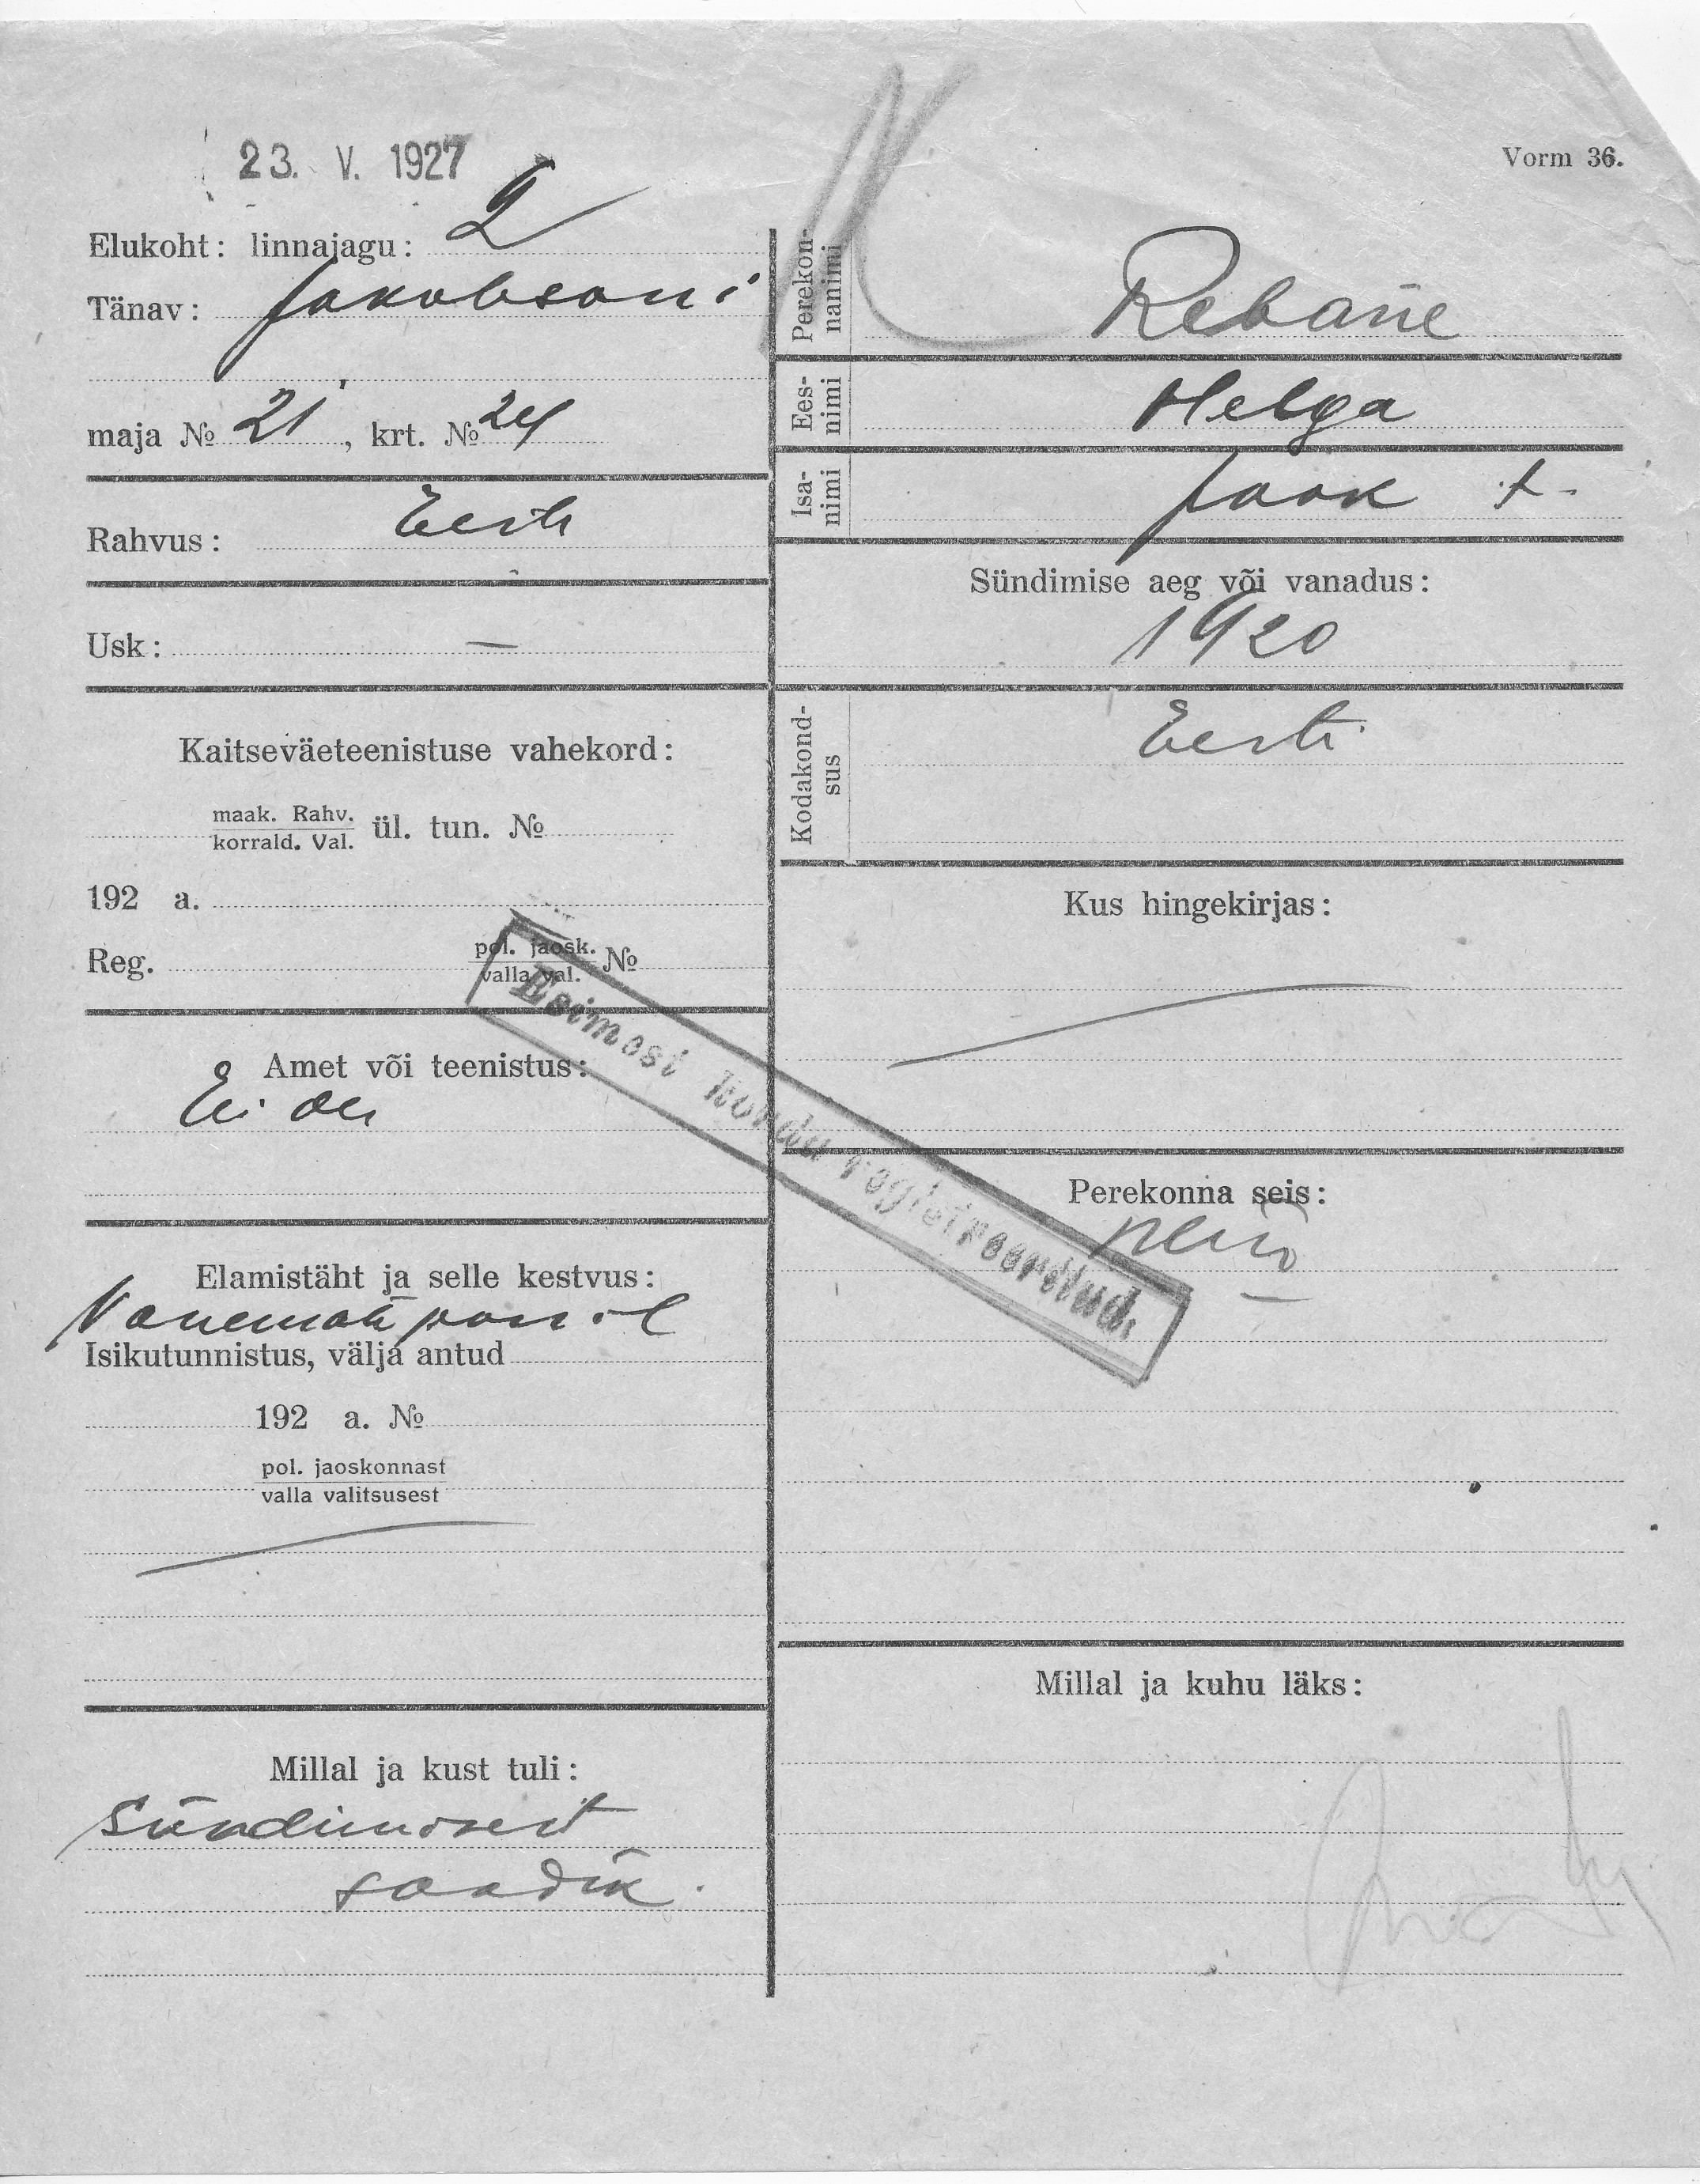 23. V. 1927
Vorm 36.
Elukoht: linnajagu: 2
Tänav: Jakobsoni
maja № 21, krt. № 24
Rahvus: Eesti
Usk: —
Kaitseväeteenistuse vahekord:
maak. Rahv.
korrald. Val. ül. tun. №
192 a.
Reg. pol. jaosk. №
valla val.
Amet või teenistus:
Ei ole
Elamistäht ja selle kestvus:
Vanemate
Isikutunnistus, välja antud
192 a. №
pol. jaoskonnast
valla valitsusest
Millal ja kust tuli:
Sündimisest
saadik.
Perekon-
nanimi
Rebane
Ees-
nimi
Helga
Isa-
nimi
Jaak
Sündimise aeg või vanadus:
1920
Kodakond-
sus
Eesti
Kus hingekirjas:
Perekonna seis:
neiu
Millal ja kuhu läks:
Esimest korda registreeritud.